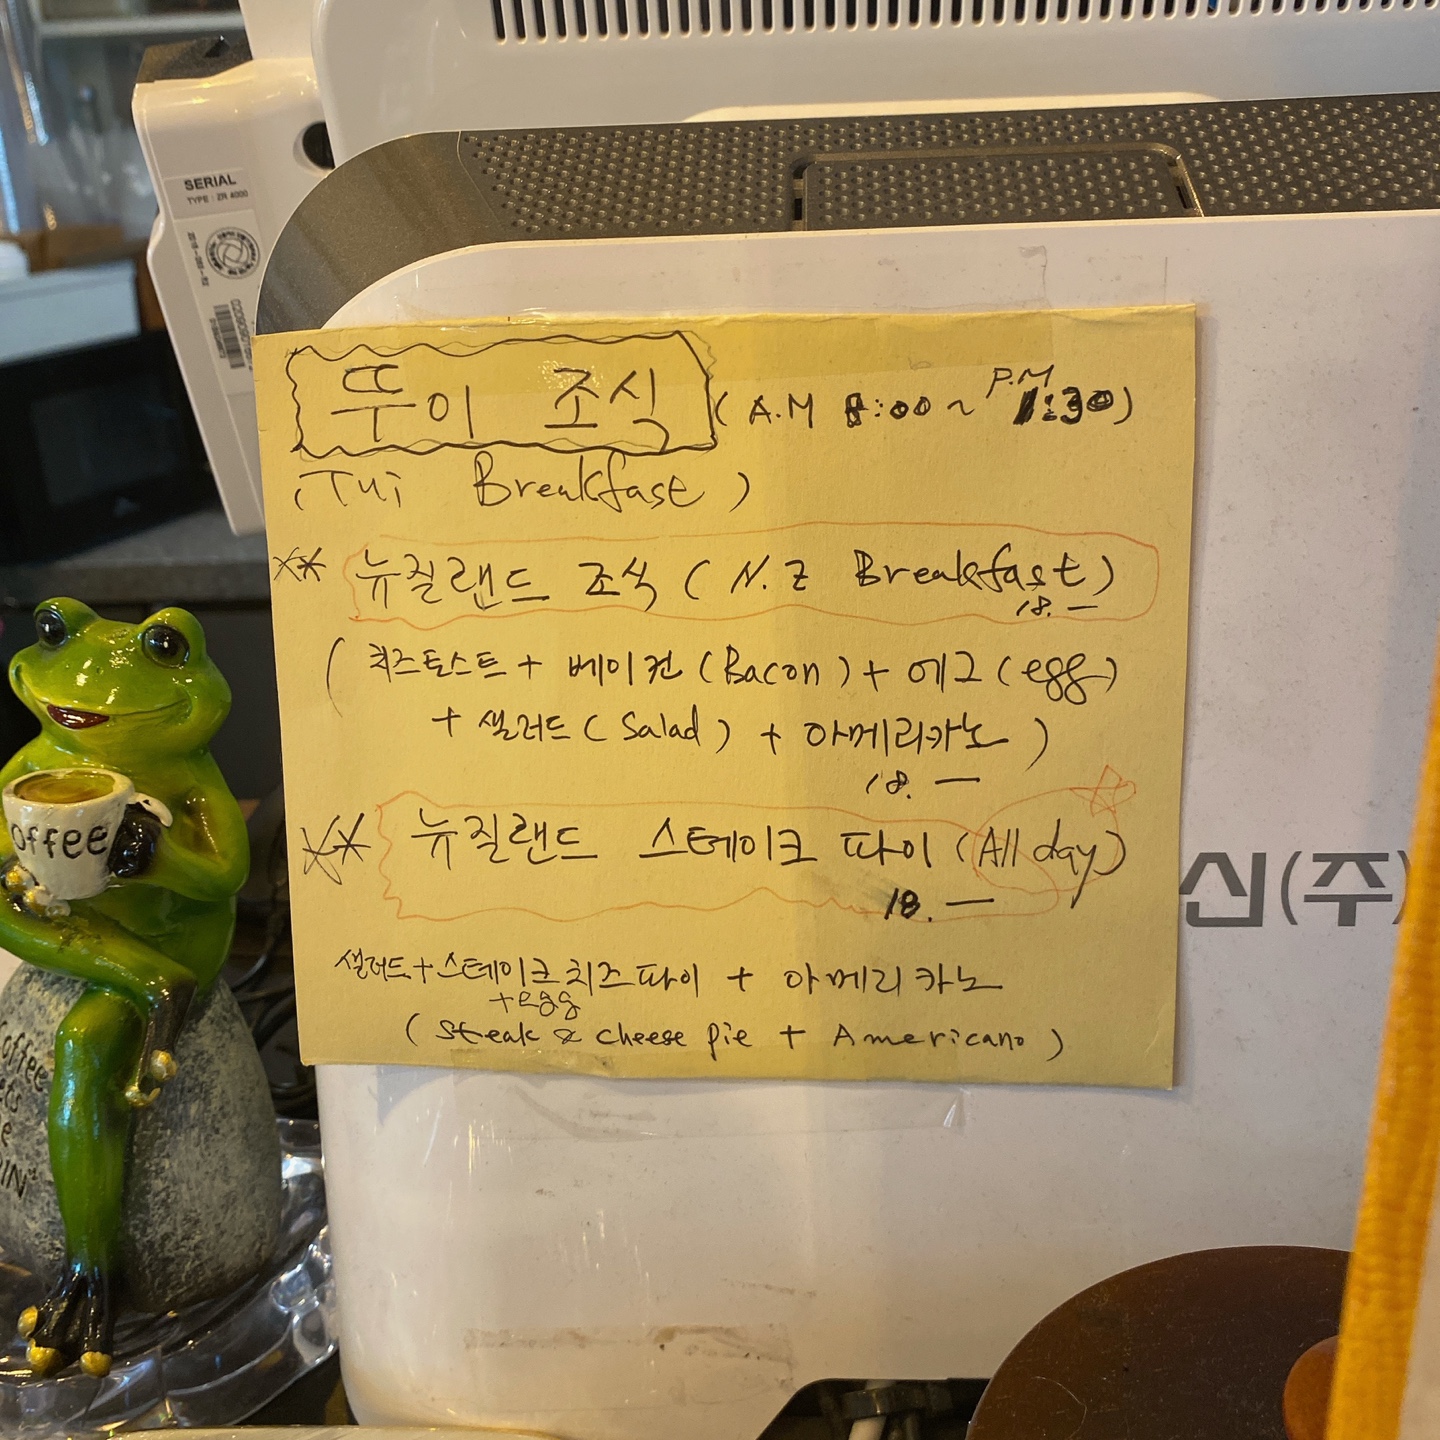 SERIAL
TYPE : ZR 4000
뚜이 조식 (A.M 8:00 ~ P.M 1:30)
(Tui Breakfast)
** 뉴질랜드 조식 (N.Z Breakfast)
18. —
(치즈토스트 + 베이컨 (Bacon) + 에그 (egg)
+ 샐러드 (Salad) + 아메리카노)
18. —
** 뉴질랜드 스테이크 파이 (All day)
18. —
샐러드 + 스테이크 치즈파이 + 아메리카노
+egg
(Steak & cheese pie + Americano)
신(주)
offee
offee